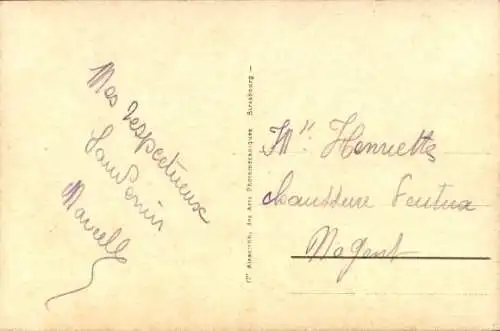 Mes respectueux
Souvenir
Marcelle
des Arts Photomécaniques Strasbourg —
Mlle Henriette
Chaussure
Nogent